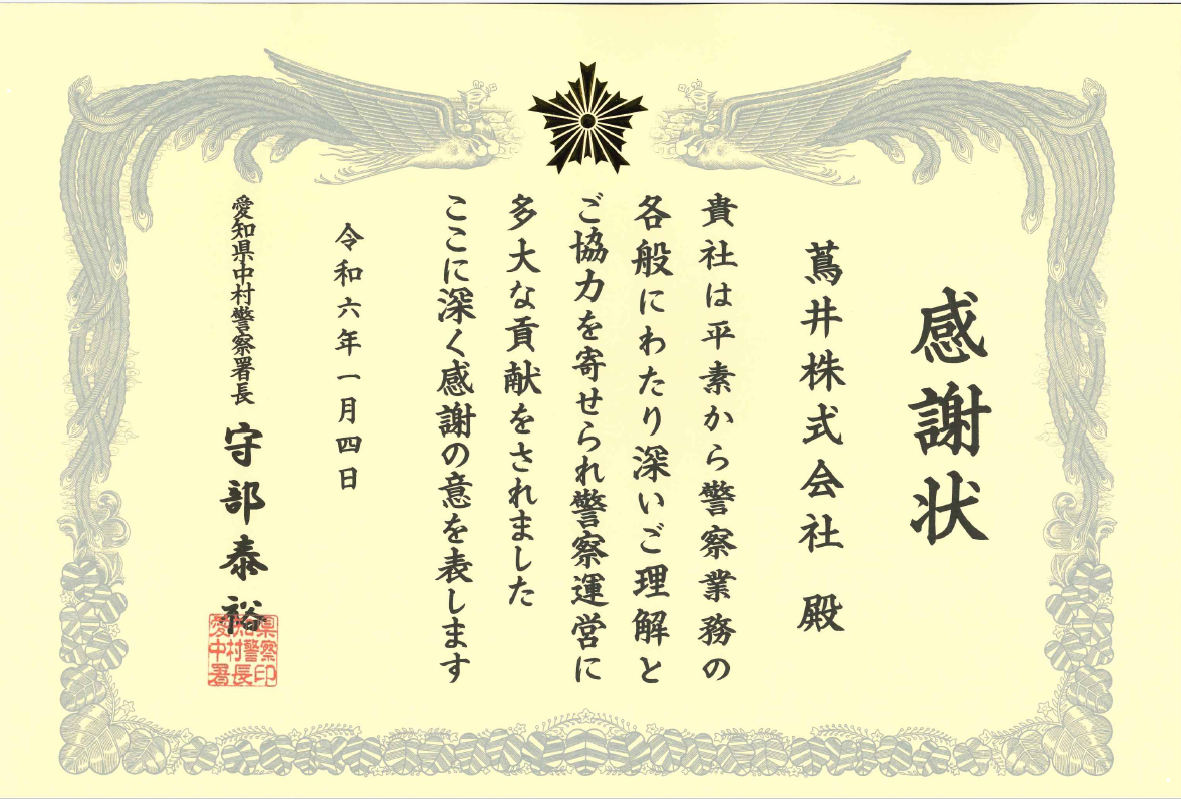 感謝状
蔦井株式会社 殿
貴社は平素から警察業務の
各般にわたり深いご理解と
ご協力を寄せられ警察運営に
多大な貢献をされました
ここに深く感謝の意を表します
令和六年一月四日
愛知県中村警察署長 守部泰裕
愛知県中村警察署長印